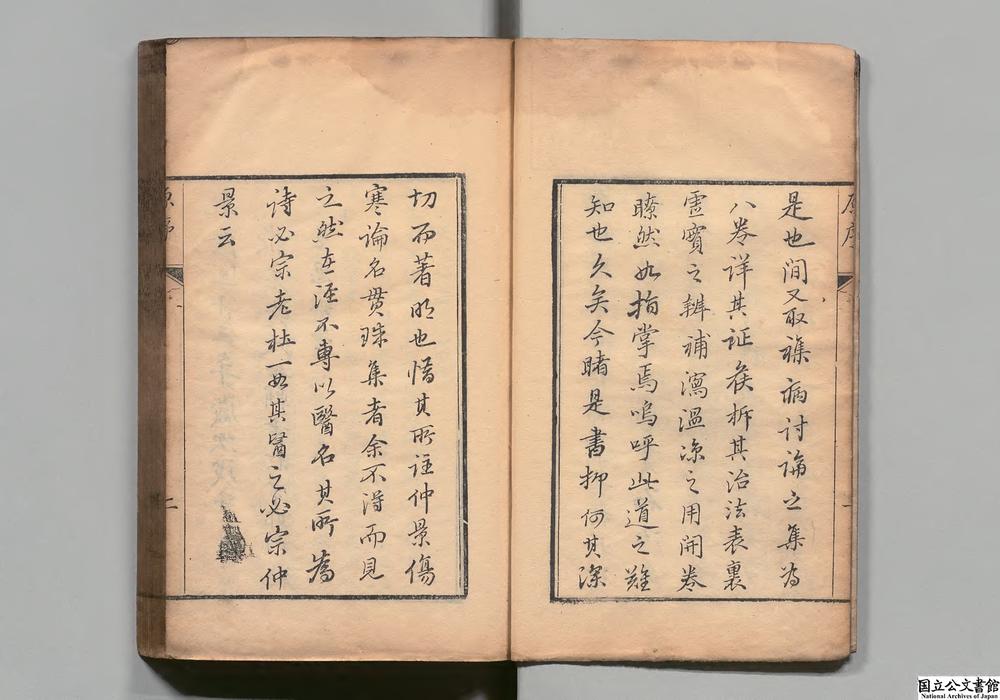 原序
是也間又取襍病討論之集為
八卷詳其证候析其治法表裏
虛實之辨補瀉温凉之用開卷
瞭然如指掌焉嗚呼此道之難
知也久矣今睹是書抑何其深
切而著明也惜其所註仲景傷
寒論名貫珠集者余不得而見
之然在涇不專以醫名其所為
詩必宗老杜一如其醫之必宗仲
景云
二
国立公文書館
National Archives of Japan